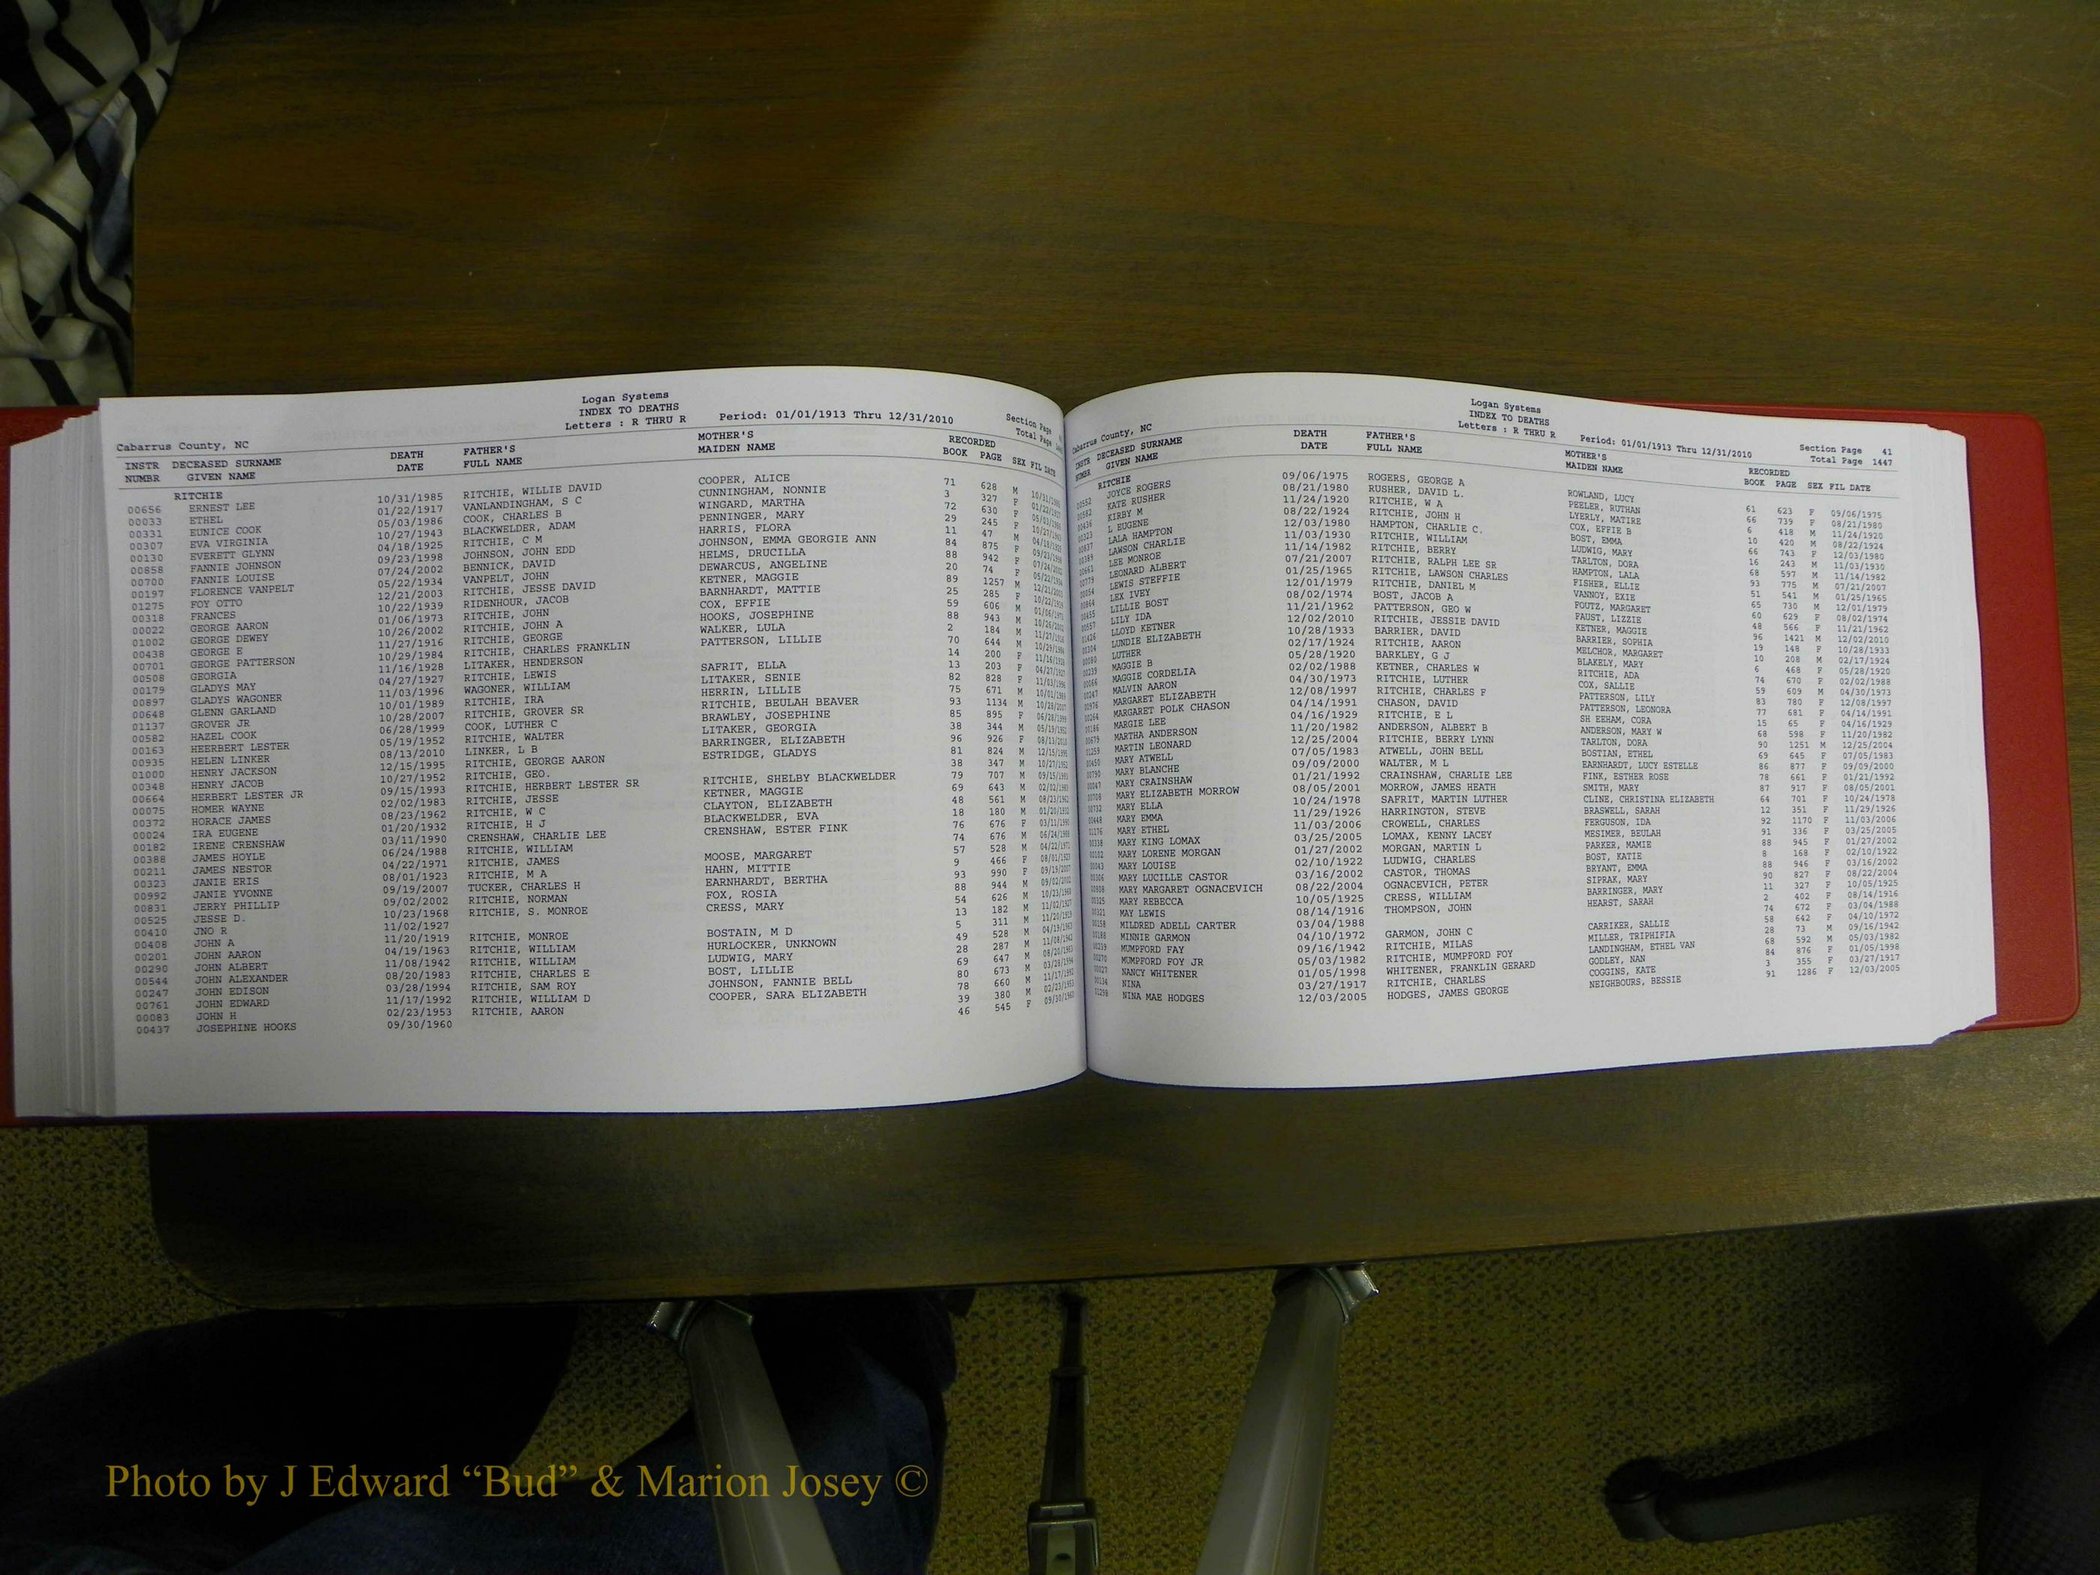 Logan Systems
INDEX TO DEATHS
Letters : R THRU R Period: 01/01/1913 Thru 12/31/2010
Section Page
Total Page
Cabarrus County, NC
INSTR DECEASED SURNAME DEATH FATHER'S MOTHER'S RECORDED
NUMBR GIVEN NAME DATE FULL NAME MAIDEN NAME BOOK PAGE SEX FIL DATE
RITCHIE
00656 ERNEST LEE 10/31/1985 RITCHIE, WILLIE DAVID COOPER, ALICE 71 628 M 10/31/1985
00033 ETHEL 01/22/1917 VANLANDINGHAM, S C CUNNINGHAM, NONNIE 3 327 F 01/22/1917
00331 EUNICE COOK 05/03/1986 COOK, CHARLES B WINGARD, MARTHA 72 630 F 05/03/1986
00307 EVA VIRGINIA 10/27/1943 BLACKWELDER, ADAM PENNINGER, MARY 29 245 F 10/27/1943
00130 EVERETT GLYNN 04/18/1925 RITCHIE, C M HARRIS, FLORA 11 47 M 04/18/1925
00858 FANNIE JOHNSON 09/23/1998 JOHNSON, JOHN EDD JOHNSON, EMMA GEORGIE ANN 84 875 F 09/23/1998
00700 FANNIE LOUISE 07/24/2002 BENNICK, DAVID HELMS, DRUCILLA 88 942 F 07/24/2002
00197 FLORENCE VANPELT 05/22/1934 VANPELT, JOHN DEWARCUS, ANGELINE 20 74 F 05/22/1934
01275 FOY OTTO 12/21/2003 RITCHIE, JESSE DAVID KETNER, MAGGIE 89 1257 M 12/21/2003
00318 FRANCES 10/22/1939 RIDENHOUR, JACOB BARNHARDT, MATTIE 25 285 F 10/22/1939
00022 GEORGE AARON 01/06/1973 RITCHIE, JOHN COX, EFFIE 59 606 M 01/06/1973
01002 GEORGE DEWEY 10/26/2002 RITCHIE, JOHN A HOOKS, JOSEPHINE 88 943 M 10/26/2002
00438 GEORGE E 11/27/1916 RITCHIE, GEORGE WALKER, LULA 2 184 M 11/27/1916
00701 GEORGE PATTERSON 10/29/1984 RITCHIE, CHARLES FRANKLIN PATTERSON, LILLIE 70 644 M 10/29/1984
00508 GEORGIA 11/16/1928 LITAKER, HENDERSON 14 200 F 11/16/1928
00179 GLADYS MAY 04/27/1927 RITCHIE, LEWIS SAFRIT, ELLA 13 203 F 04/27/1927
00897 GLADYS WAGONER 11/03/1996 WAGONER, WILLIAM LITAKER, SENIE 82 828 F 11/03/1996
00648 GLENN GARLAND 10/01/1989 RITCHIE, IRA HERRIN, LILLIE 75 671 M 10/01/1989
01137 GROVER JR 10/28/2007 RITCHIE, GROVER SR RITCHIE, BEULAH BEAVER 93 1134 M 10/28/2007
00582 HAZEL COOK 06/28/1999 COOK, LUTHER C BRAWLEY, JOSEPHINE 85 895 F 06/28/1999
00163 HEERBERT LESTER 05/19/1952 RITCHIE, WALTER LITAKER, GEORGIA 38 344 M 05/19/1952
00935 HELEN LINKER 08/13/2010 LINKER, L B BARRINGER, ELIZABETH 96 926 F 08/13/2010
01000 HENRY JACKSON 12/15/1995 RITCHIE, GEORGE AARON ESTRIDGE, GLADYS 81 824 M 12/15/1995
00348 HENRY JACOB 10/27/1952 RITCHIE, GEO. 38 347 M 10/27/1952
00664 HERBERT LESTER JR 09/15/1993 RITCHIE, HERBERT LESTER SR RITCHIE, SHELBY BLACKWELDER 79 707 M 09/15/1993
00075 HOMER WAYNE 02/02/1983 RITCHIE, JESSE KETNER, MAGGIE 69 643 M 02/02/1983
00372 HORACE JAMES 08/23/1962 RITCHIE, W C CLAYTON, ELIZABETH 48 561 M 08/23/1962
00024 IRA EUGENE 01/20/1932 RITCHIE, H J BLACKWELDER, EVA 18 180 M 01/20/1932
00182 IRENE CRENSHAW 03/11/1990 CRENSHAW, CHARLIE LEE CRENSHAW, ESTER FINK 76 676 F 03/11/1990
00388 JAMES HOYLE 06/24/1988 RITCHIE, WILLIAM 74 676 M 06/24/1988
00211 JAMES NESTOR 04/22/1971 RITCHIE, JAMES MOOSE, MARGARET 57 528 M 04/22/1971
00323 JANIE ERIS 08/01/1923 RITCHIE, M A HAHN, MITTIE 9 466 F 08/01/1923
00992 JANIE YVONNE 09/19/2007 TUCKER, CHARLES H EARNHARDT, BERTHA 93 990 F 09/19/2007
00831 JERRY PHILLIP 09/02/2002 RITCHIE, NORMAN FOX, ROSIA 88 944 M 09/02/2002
00525 JESSE D. 10/23/1968 RITCHIE, S. MONROE CRESS, MARY 54 626 M 10/23/1968
00410 JNO R 11/02/1927 13 182 M 11/02/1927
00408 JOHN A 11/20/1919 RITCHIE, MONROE BOSTAIN, M D 5 311 M 11/20/1919
00201 JOHN AARON 04/19/1963 RITCHIE, WILLIAM HURLOCKER, UNKNOWN 49 528 M 04/19/1963
00290 JOHN ALBERT 11/08/1942 RITCHIE, WILLIAM LUDWIG, MARY 28 287 M 11/08/1942
00544 JOHN ALEXANDER 08/20/1983 RITCHIE, CHARLES E BOST, LILLIE 69 647 M 08/20/1983
00247 JOHN EDISON 03/28/1994 RITCHIE, SAM ROY JOHNSON, FANNIE BELL 80 673 M 03/28/1994
00761 JOHN EDWARD 11/17/1992 RITCHIE, WILLIAM D COOPER, SARA ELIZABETH 78 660 M 11/17/1992
00083 JOHN H 02/23/1953 RITCHIE, AARON 39 380 M 02/23/1953
00437 JOSEPHINE HOOKS 09/30/1960 46 545 F 09/30/1960
Logan Systems
INDEX TO DEATHS
Letters : R THRU R Period: 01/01/1913 Thru 12/31/2010
Section Page 41
Total Page 1447
Cabarrus County, NC
INSTR DECEASED SURNAME DEATH FATHER'S MOTHER'S RECORDED
NUMBR GIVEN NAME DATE FULL NAME MAIDEN NAME BOOK PAGE SEX FIL DATE
RITCHIE
00552 JOYCE ROGERS 09/06/1975 ROGERS, GEORGE A ROWLAND, LUCY 61 623 F 09/06/1975
00582 KATE RUSHER 08/21/1980 RUSHER, DAVID L. PEELER, RUTHAN 66 739 F 08/21/1980
00436 KIRBY M 11/24/1920 RITCHIE, W A LYERLY, MATIRE 6 418 M 11/24/1920
00323 L EUGENE 08/22/1924 RITCHIE, JOHN H COX, EFFIE B 10 420 M 08/22/1924
00837 LALA HAMPTON 12/03/1980 HAMPTON, CHARLIE C. BOST, EMMA 66 743 F 12/03/1980
00389 LAWSON CHARLIE 11/03/1930 RITCHIE, WILLIAM LUDWIG, MARY 16 243 M 11/03/1930
00661 LEE MONROE 11/14/1982 RITCHIE, BERRY TARLTON, DORA 68 597 M 11/14/1982
00779 LEONARD ALBERT 07/21/2007 RITCHIE, RALPH LEE SR HAMPTON, LALA 93 775 M 07/21/2007
00054 LEWIS STEFFIE 01/25/1965 RITCHIE, LAWSON CHARLES FISHER, ELLIE 51 541 M 01/25/1965
00864 LEX IVEY 12/01/1979 RITCHIE, DANIEL M VANNOY, EXIE 65 730 M 12/01/1979
00455 LILLIE BOST 08/02/1974 BOST, JACOB A FOUTZ, MARGARET 60 629 F 08/02/1974
00557 LILY IDA 11/21/1962 PATTERSON, GEO W FAUST, LIZZIE 48 566 F 11/21/1962
01426 LLOYD KETNER 12/02/2010 RITCHIE, JESSIE DAVID KETNER, MAGGIE 96 1421 M 12/02/2010
00304 LUNDIE ELIZABETH 10/28/1933 BARRIER, DAVID BARRIER, SOPHIA 19 148 F 10/28/1933
00080 LUTHER 02/17/1924 RITCHIE, AARON MELCHOR, MARGARET 10 208 M 02/17/1924
00239 MAGGIE B 05/28/1920 BARKLEY, G J BLAKELY, MARY 6 468 F 05/28/1920
00066 MAGGIE CORDELIA 02/02/1988 KETNER, CHARLES W RITCHIE, ADA 74 670 F 02/02/1988
00247 MALVIN AARON 04/30/1973 RITCHIE, LUTHER COX, SALLIE 59 609 M 04/30/1973
00976 MARGARET ELIZABETH 12/08/1997 RITCHIE, CHARLES F PATTERSON, LILY 83 780 F 12/08/1997
00264 MARGARET POLK CHASON 04/14/1991 CHASON, DAVID PATTERSON, LEONORA 77 681 F 04/14/1991
00166 MARGIE LEE 04/16/1929 RITCHIE, E L SH EEHAM, CORA 15 65 F 04/16/1929
00679 MARTHA ANDERSON 11/20/1982 ANDERSON, ALBERT B ANDERSON, MARY W 68 598 F 11/20/1982
01259 MARTIN LEONARD 12/25/2004 RITCHIE, BERRY LYNN TARLTON, DORA 90 1251 M 12/25/2004
00450 MARY ATWELL 07/05/1983 ATWELL, JOHN BELL BOSTIAN, ETHEL 69 645 F 07/05/1983
00790 MARY BLANCHE 09/09/2000 WALTER, M L EARNHARDT, LUCY ESTELLE 86 877 F 09/09/2000
00047 MARY CRAINSHAW 01/21/1992 CRAINSHAW, CHARLIE LEE FINK, ESTHER ROSE 78 661 F 01/21/1992
00708 MARY ELIZABETH MORROW 08/05/2001 MORROW, JAMES HEATH SMITH, MARY 87 917 F 08/05/2001
00732 MARY ELLA 10/24/1978 SAFRIT, MARTIN LUTHER CLINE, CHRISTINA ELIZABETH 64 701 F 10/24/1978
00448 MARY EMMA 11/29/1926 HARRINGTON, STEVE BRASWELL, SARAH 12 351 F 11/29/1926
01176 MARY ETHEL 11/03/2006 CROWELL, CHARLES FERGUSON, IDA 92 1170 F 11/03/2006
00338 MARY KING LOMAX 03/25/2005 LOMAX, KENNY LACEY MESIMER, BEULAH 91 336 F 03/25/2005
00102 MARY LORENE MORGAN 01/27/2002 MORGAN, MARTIN L PARKER, MAMIE 88 945 F 01/27/2002
00043 MARY LOUISE 02/10/1922 LUDWIG, CHARLES BOST, KATIE 8 168 F 02/10/1922
00306 MARY LUCILLE CASTOR 03/16/2002 CASTOR, THOMAS BRYANT, EMMA 88 946 F 03/16/2002
00808 MARY MARGARET OGNACEVICH 08/22/2004 OGNACEVICH, PETER SIPRAK, MARY 90 827 F 08/22/2004
00325 MARY REBECCA 10/05/1925 CRESS, WILLIAM BARRINGER, MARY 11 327 F 10/05/1925
00321 MAY LEWIS 08/14/1916 THOMPSON, JOHN HEARST, SARAH 2 402 F 08/14/1916
00158 MILDRED ADELL CARTER 03/04/1988 74 672 F 03/04/1988
00188 MINNIE GARMON 04/10/1972 GARMON, JOHN C CARRIKER, SALLIE 58 642 F 04/10/1972
00259 MUMPFORD FAY 09/16/1942 RITCHIE, MILAS MILLER, TRIPHIFIA 28 73 M 09/16/1942
00270 MUMPFORD FOY JR 05/03/1982 RITCHIE, MUMPFORD FOY LANDINGHAM, ETHEL VAN 68 592 M 05/03/1982
00027 NANCY WHITENER 01/05/1998 WHITENER, FRANKLIN GERARD GODLEY, NAN 84 876 F 01/05/1998
00134 NINA 03/27/1917 RITCHIE, CHARLES COGGINS, KATE 3 355 F 03/27/1917
01298 NINA MAE HODGES 12/03/2005 HODGES, JAMES GEORGE NEIGHBOURS, BESSIE 91 1286 F 12/03/2005
Photo by J Edward “Bud” & Marion Josey ©